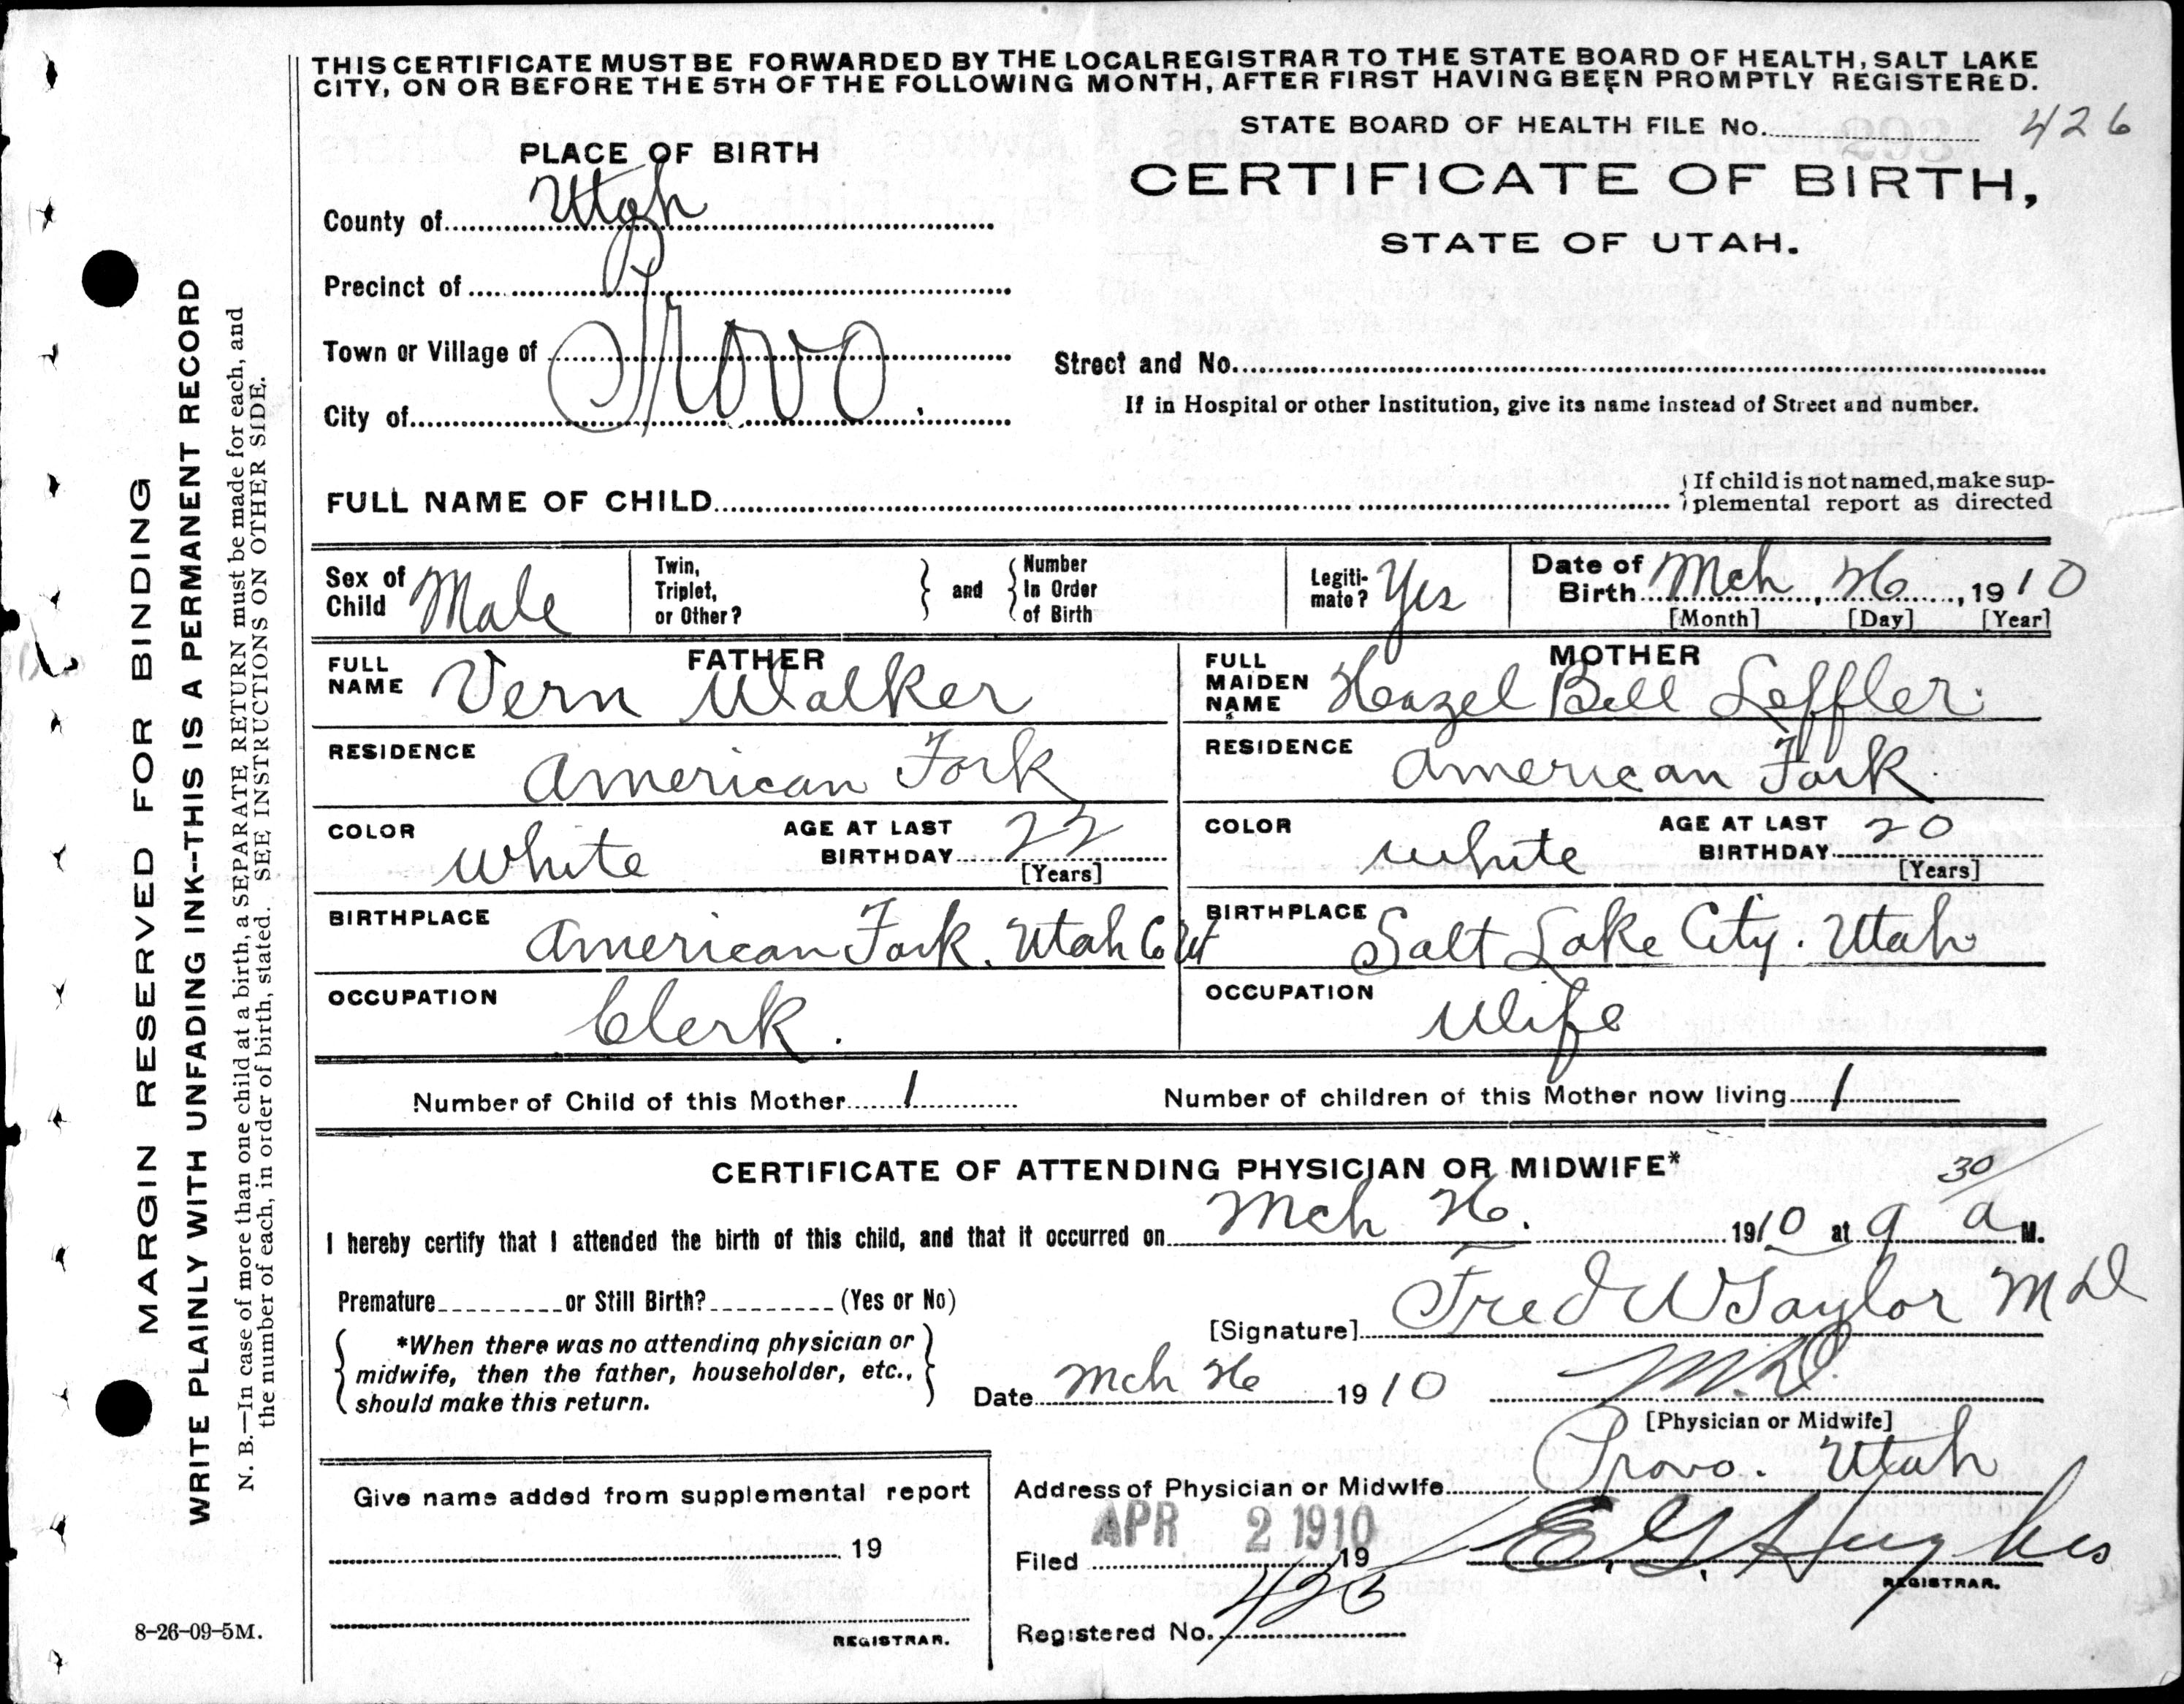 THIS CERTIFICATE MUST BE FORWARDED BY THE LOCAL REGISTRAR TO THE STATE BOARD OF HEALTH, SALT LAKE
CITY, ON OR BEFORE THE 5TH OF THE FOLLOWING MONTH, AFTER FIRST HAVING BEEN PROMPTLY REGISTERED.
STATE BOARD OF HEALTH FILE No. 426
PLACE OF BIRTH
CERTIFICATE OF BIRTH,
STATE OF UTAH.
County of Utah
Precinct of
Town or Village of Provo
City of
Street and No.
If in Hospital or other Institution, give its name instead of Street and number.
FULL NAME OF CHILD
If child is not named, make sup-
plemental report as directed
Sex of Child Male
Twin, Triplet, or Other?
and
Number In Order of Birth
Legiti-mate? Yes
Date of Birth Mch, 26, 1910
[Month] [Day] [Year]
FATHER
FULL NAME Vern Walker
RESIDENCE American Fork
COLOR White
AGE AT LAST BIRTHDAY 22
[Years]
BIRTHPLACE American Fork. Utah Co Ut
OCCUPATION Clerk.
MOTHER
FULL MAIDEN NAME Heazel Bell Leffler.
RESIDENCE American Fork.
COLOR White
AGE AT LAST BIRTHDAY 20
[Years]
BIRTHPLACE Salt Lake City. Utah
OCCUPATION Wife
Number of Child of this Mother 1
Number of children of this Mother now living 1
CERTIFICATE OF ATTENDING PHYSICIAN OR MIDWIFE*
I hereby certify that I attended the birth of this child, and that it occurred on Mch 26. 1910 at 9 30 a M.
Premature or Still Birth? (Yes or No)
[Signature] Fred W Taylor MD
*When there was no attending physician or
midwife, then the father, householder, etc.,
should make this return.
Date Mch 26 1910 M.D.
[Physician or Midwife]
Address of Physician or Midwife Provo. Utah
Give name added from supplemental report
19
REGISTRAR.
Filed APR 2 1910 19
E. G. Hughes
REGISTRAR.
Registered No.
MARGIN RESERVED FOR BINDING
WRITE PLAINLY WITH UNFADING INK--THIS IS A PERMANENT RECORD
N. B.—In case of more than one child at a birth, a SEPARATE RETURN must be made for each, and
the number of each, in order of birth, stated. SEE INSTRUCTIONS ON OTHER SIDE.
8-26-09-5M.